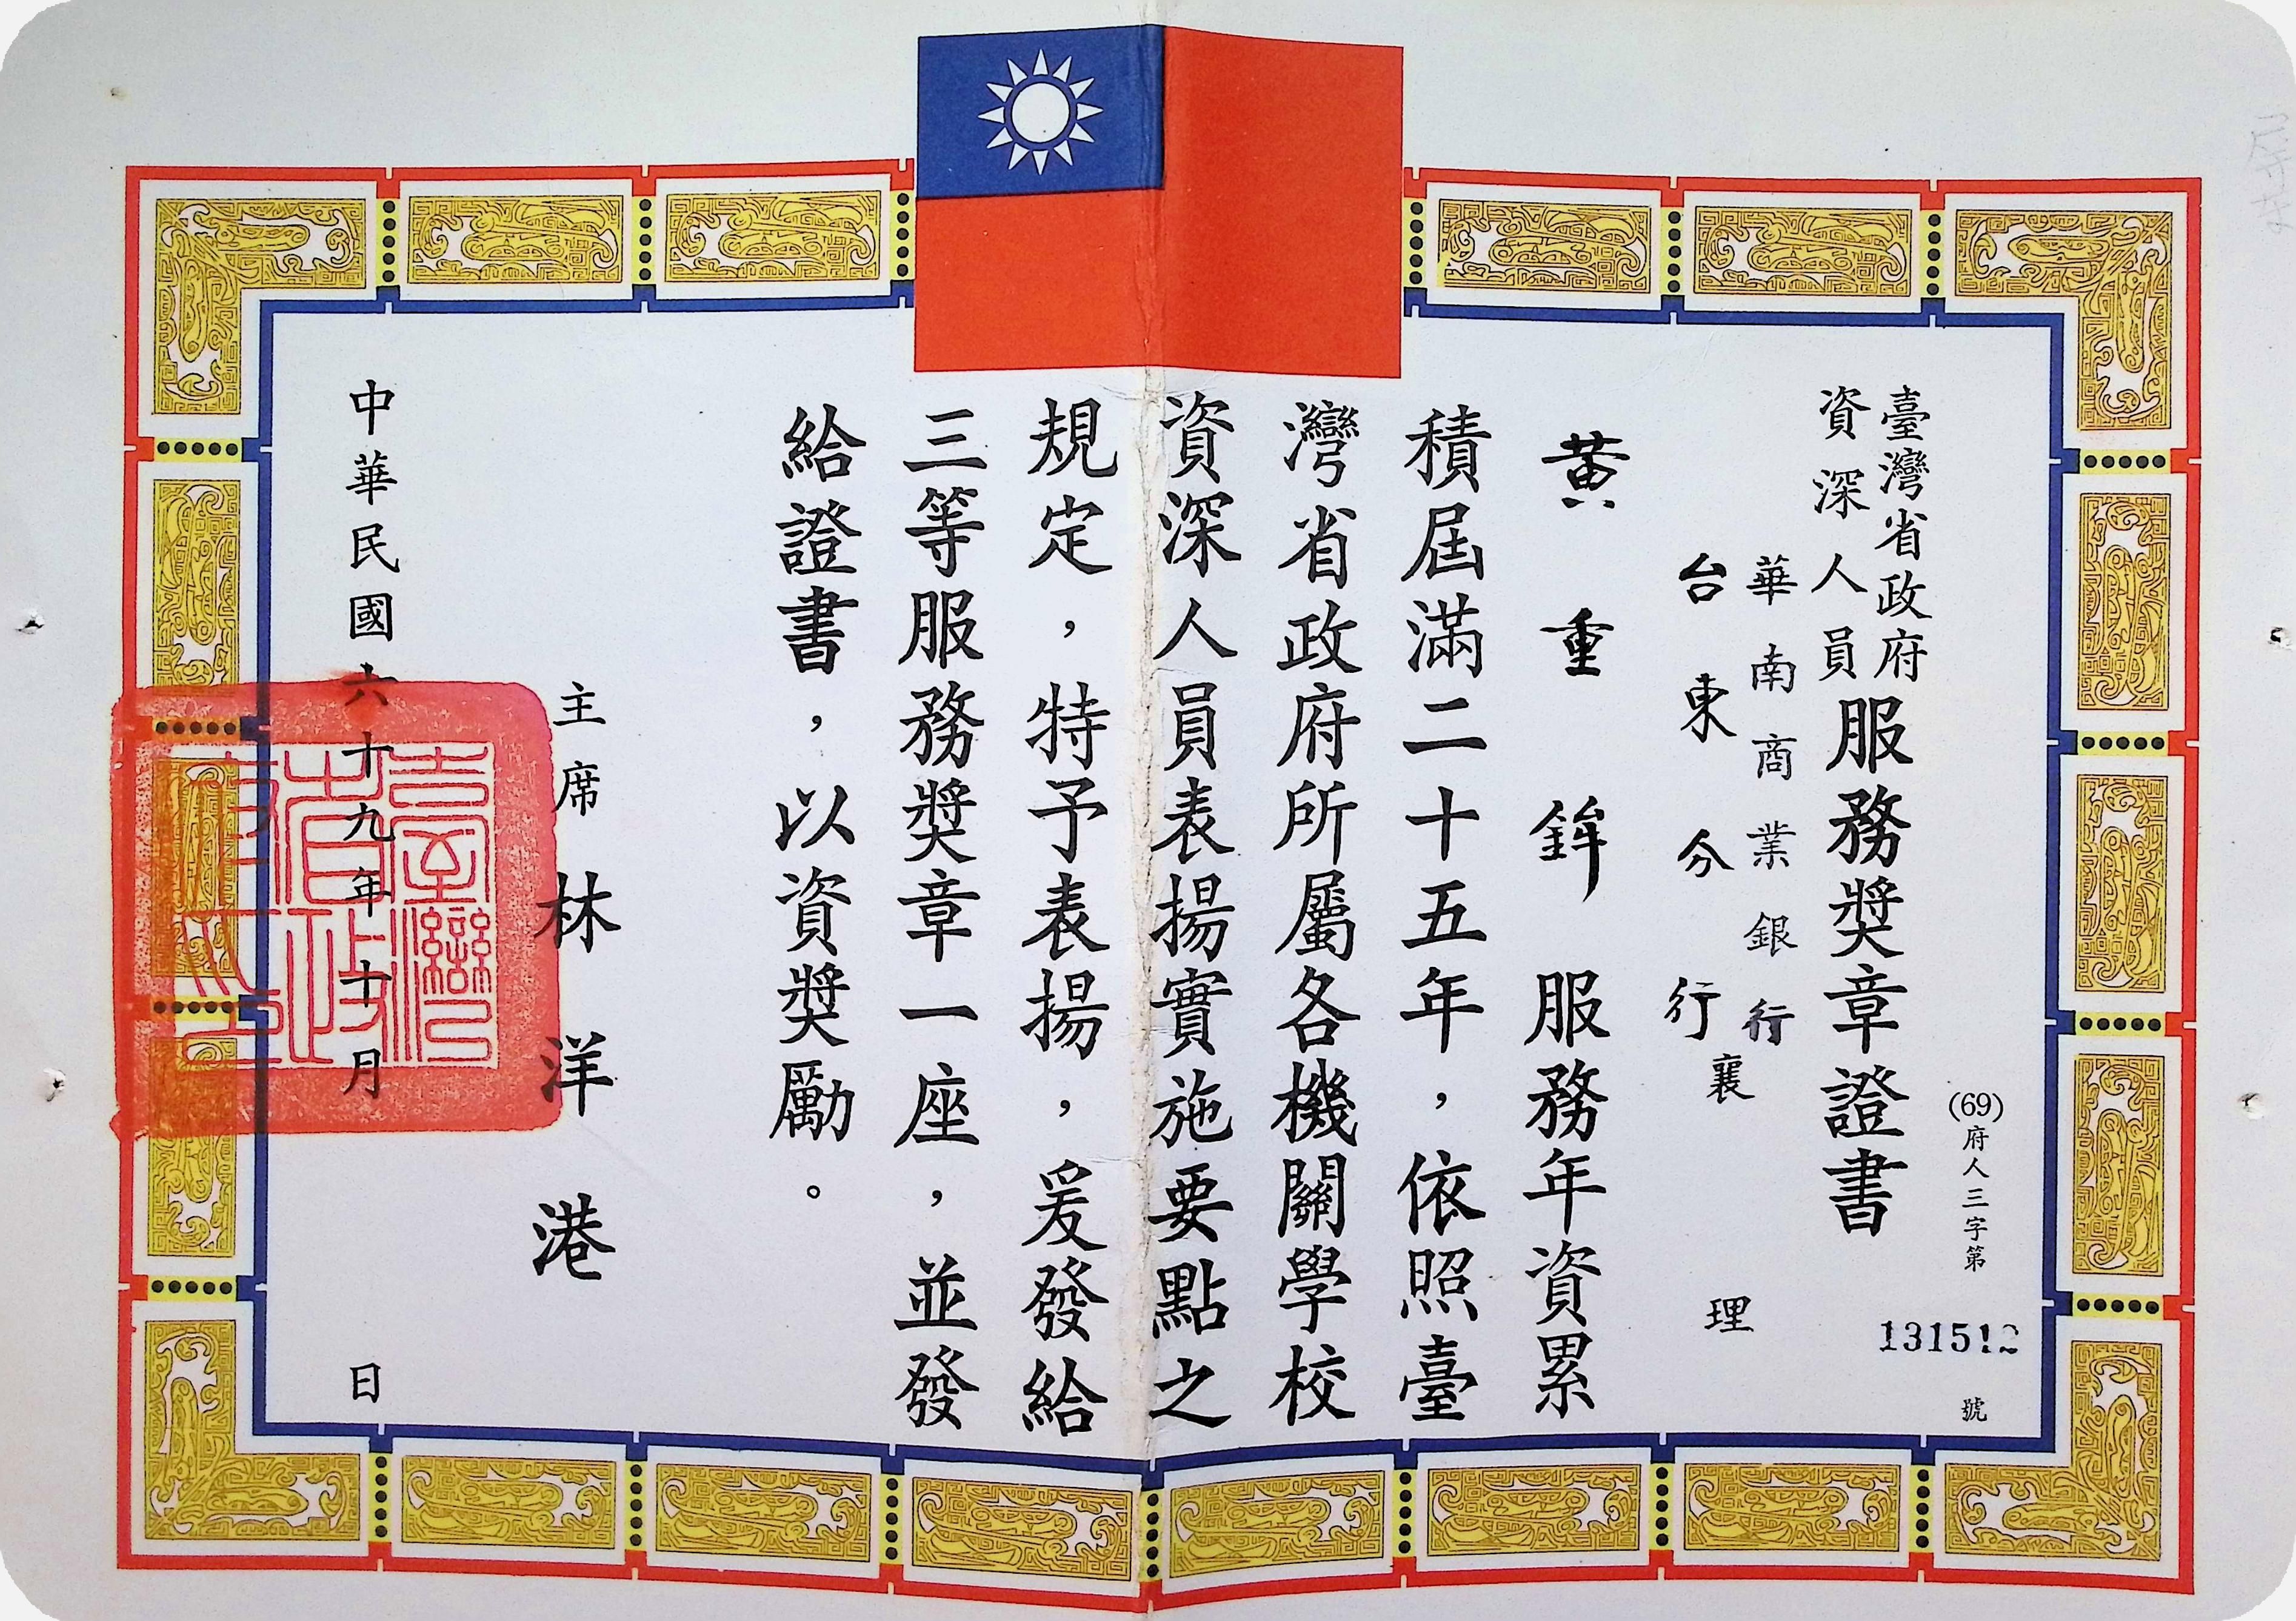 (69)府人三字第131512號
臺灣省政府
資深人員
服務獎章證書
華南商業銀行
台東分行
襄理
黃重鉾服務年資累
積屆滿二十五年，依照臺
灣省政府所屬各機關學校
資深人員表揚實施要點之
規定，特予表揚，爰發給
三等服務獎章一座，並發
給證書，以資獎勵。
主席林洋港
中華民國六十九年十月日